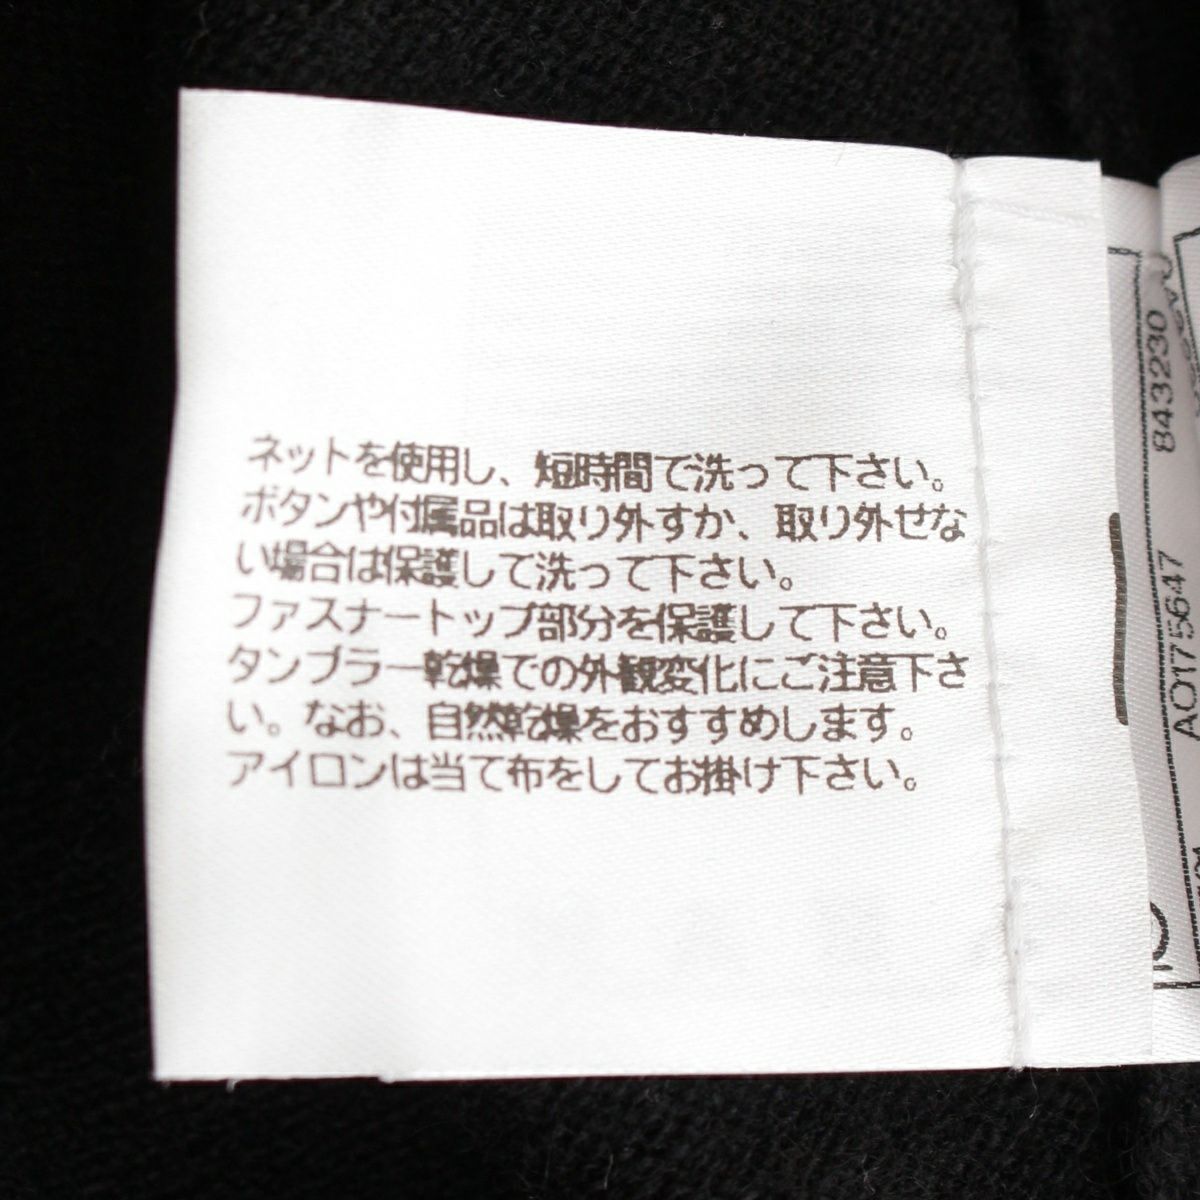 ネットを使用し、短時間で洗って下さい。
ボタンや付属品は取り外すか、取り外せな
い場合は保護して洗って下さい。
ファスナートップ部分を保護して下さい。
タンブラー乾燥での外観変化にご注意下さ
い。なお、自然乾燥をおすすめします。
アイロンは当て布をしてお掛け下さい。
843230
AO175647